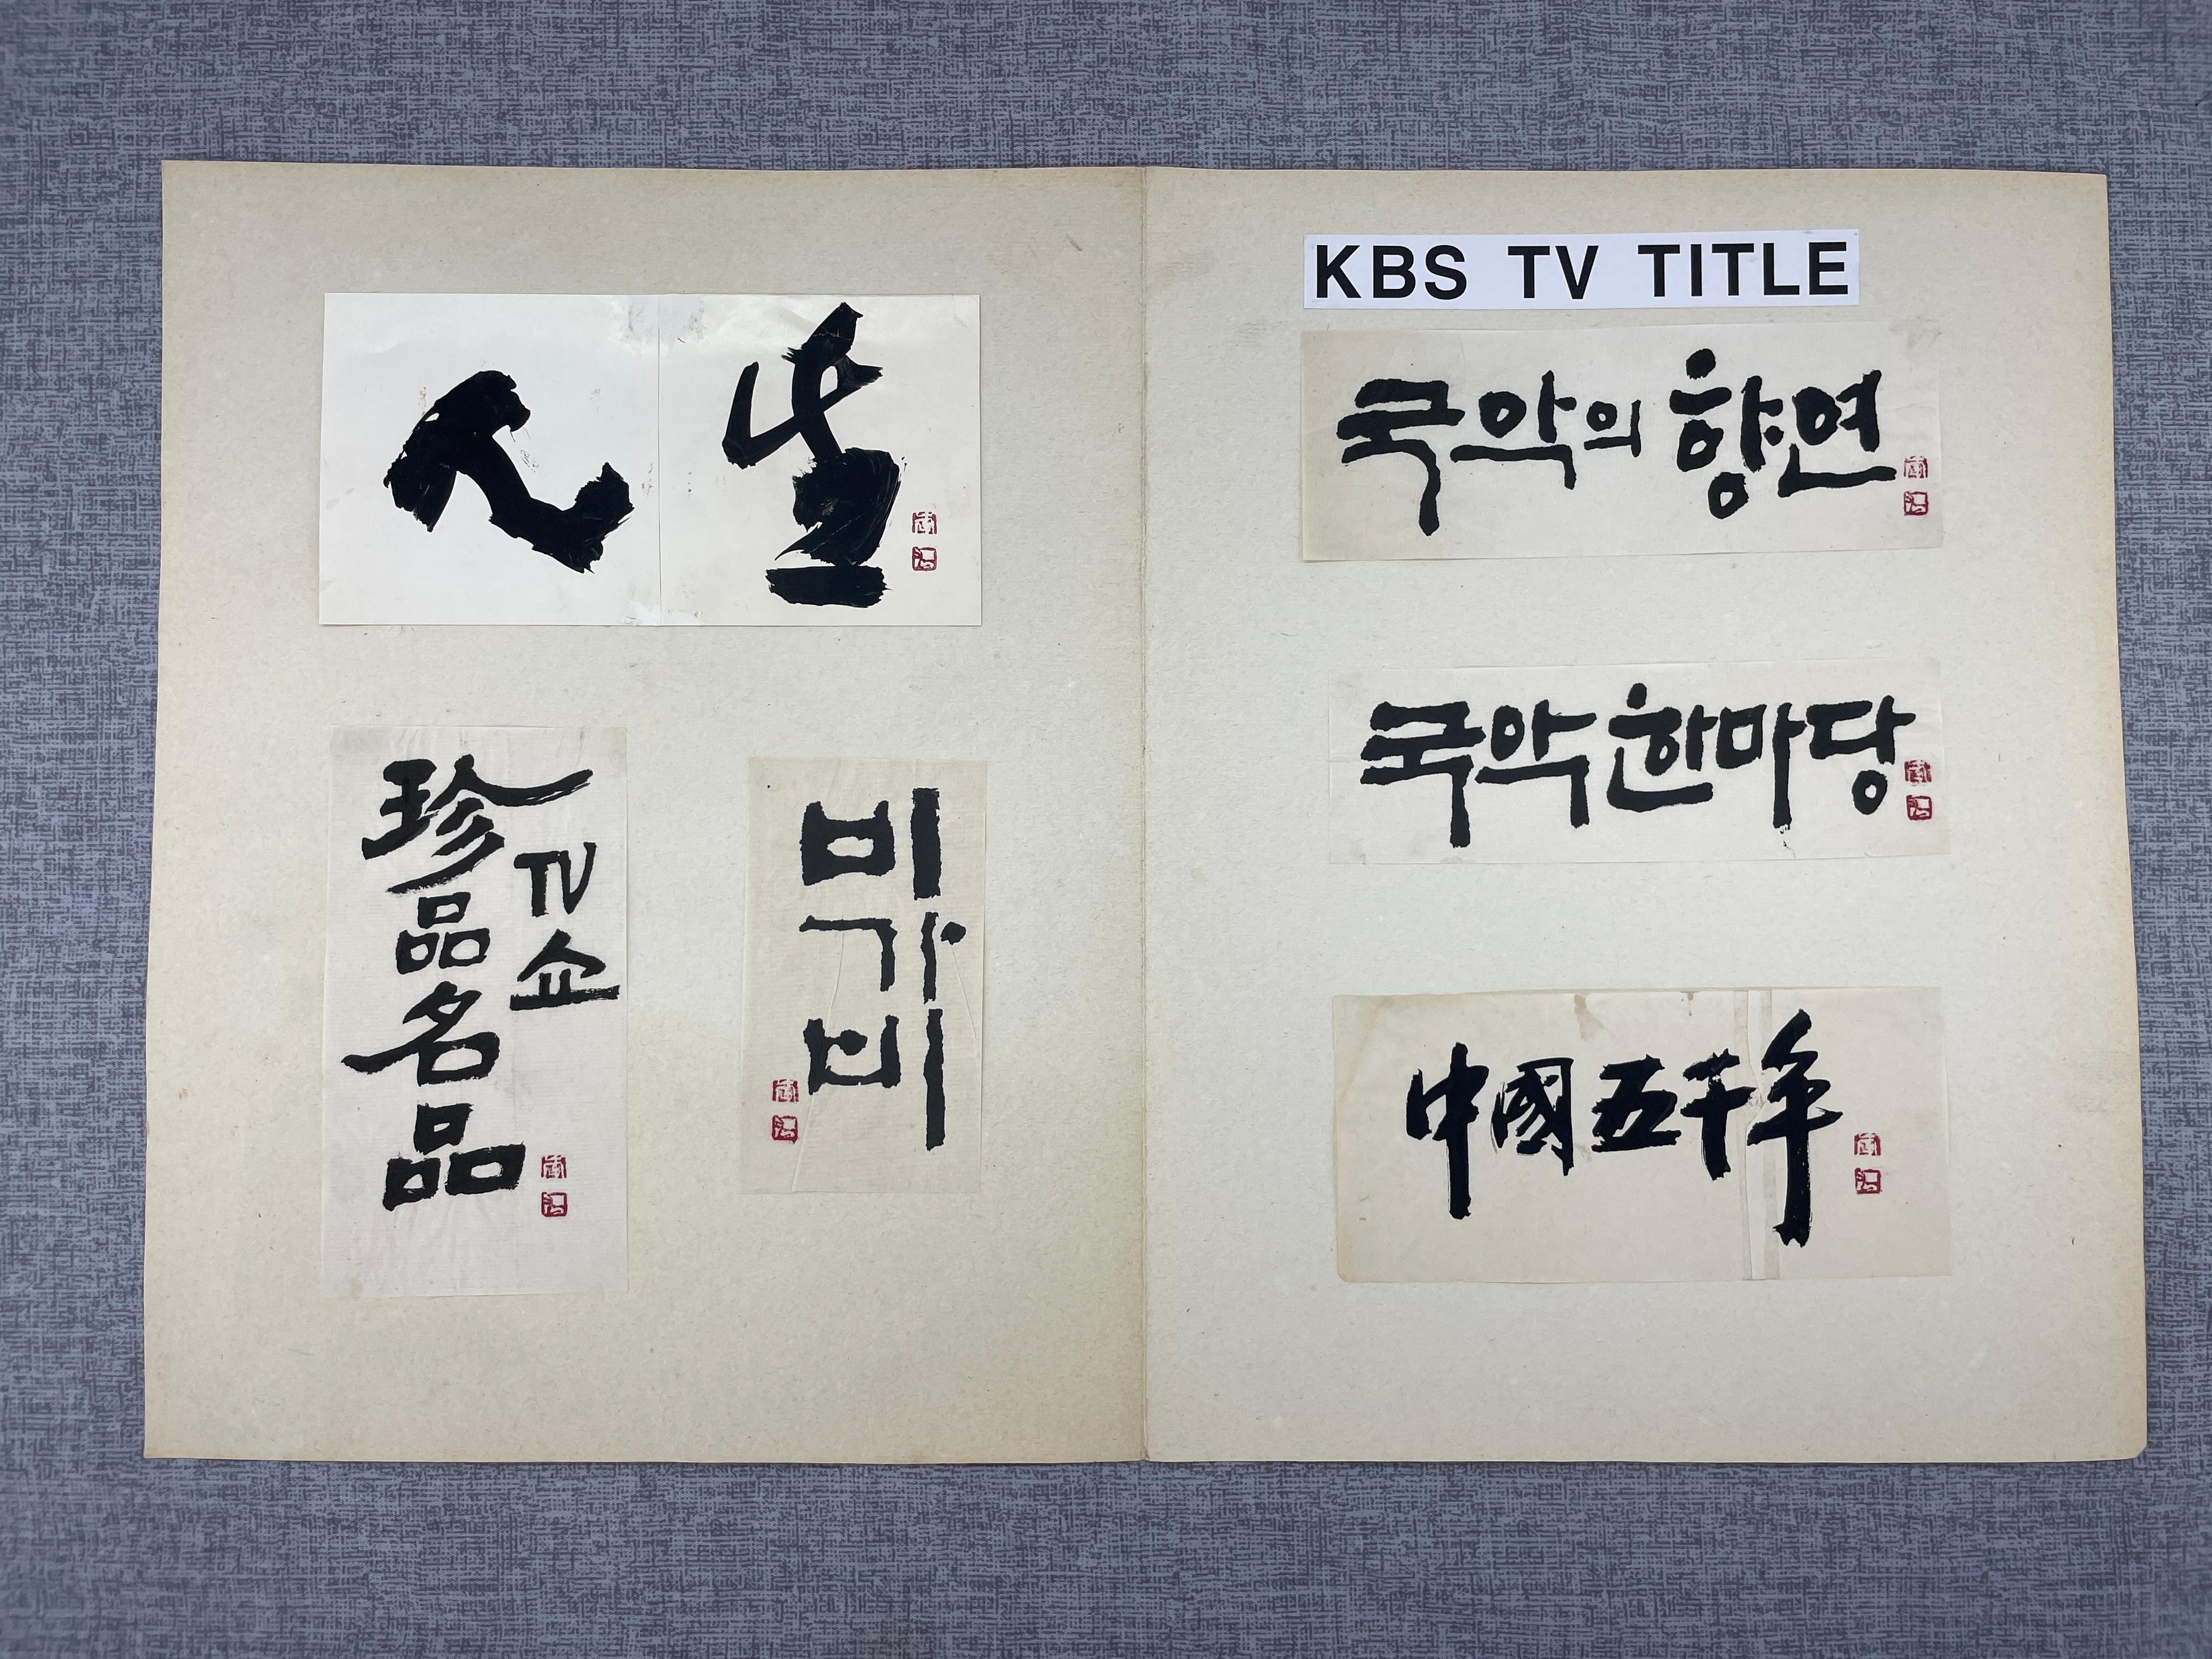 人生
TV쇼
珍品名品
비가비
KBS TV TITLE
국악의 향연
국악 한마당
中國五千年